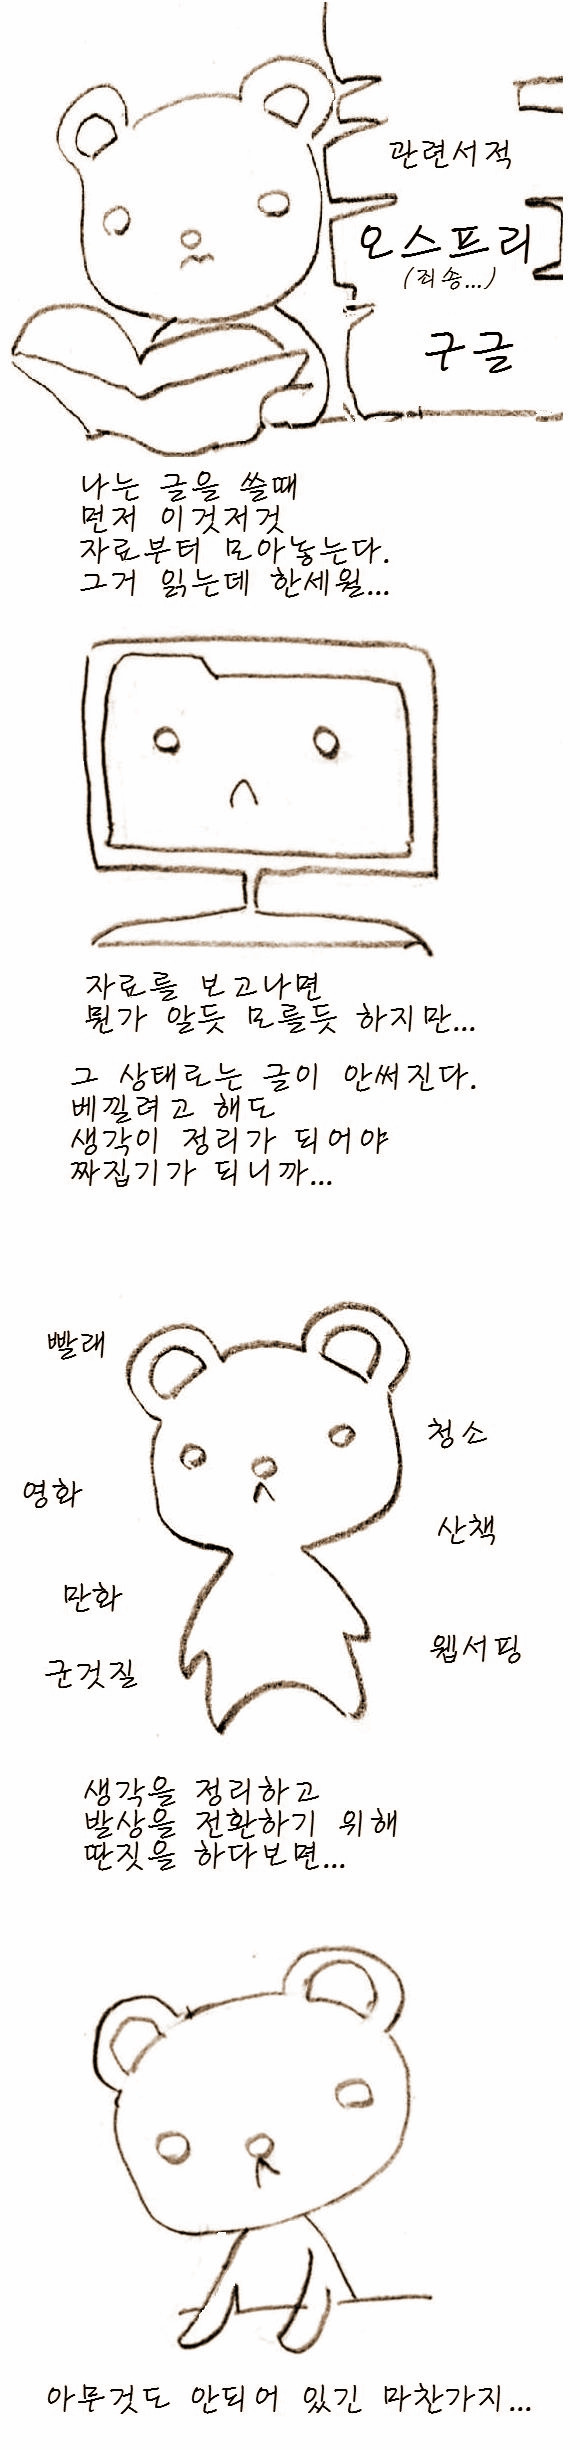 관련서적
오스프리
(죄송...)
구글
나는 글을 쓸때
먼저 이것저것
자료부터 모아놓는다.
그거 읽는데 한세월...
자료를 보고나면
뭔가 알듯 모를듯 하지만...
그 상태로는 글이 안써진다.
베낄려고 해도
생각이 정리가 되어야
짜집기가 되니까...
빨래
청소
영화
산책
만화
웹서핑
군것질
생각을 정리하고
발상을 전환하기 위해
딴짓을 하다보면...
아무것도 안되어 있긴 마찬가지...